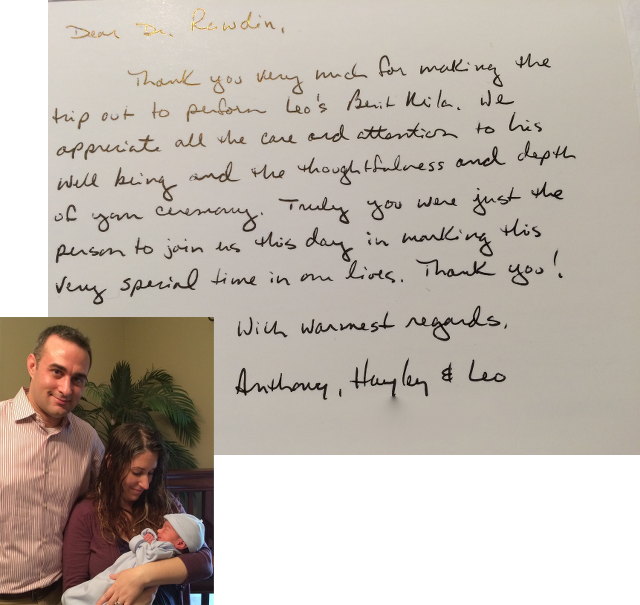 Dear Dr. Rawdin,
Thank you very much for making the
trip out to perform Leo's Berit Mila. We
appreciate all the care and attention to his
well being and the thoughtfulness and depth
of your ceremony. Truly you were just the
person to join us this day in marking this
very special time in our lives. Thank you!
With warmest regards,
Anthony, Hayley & Leo